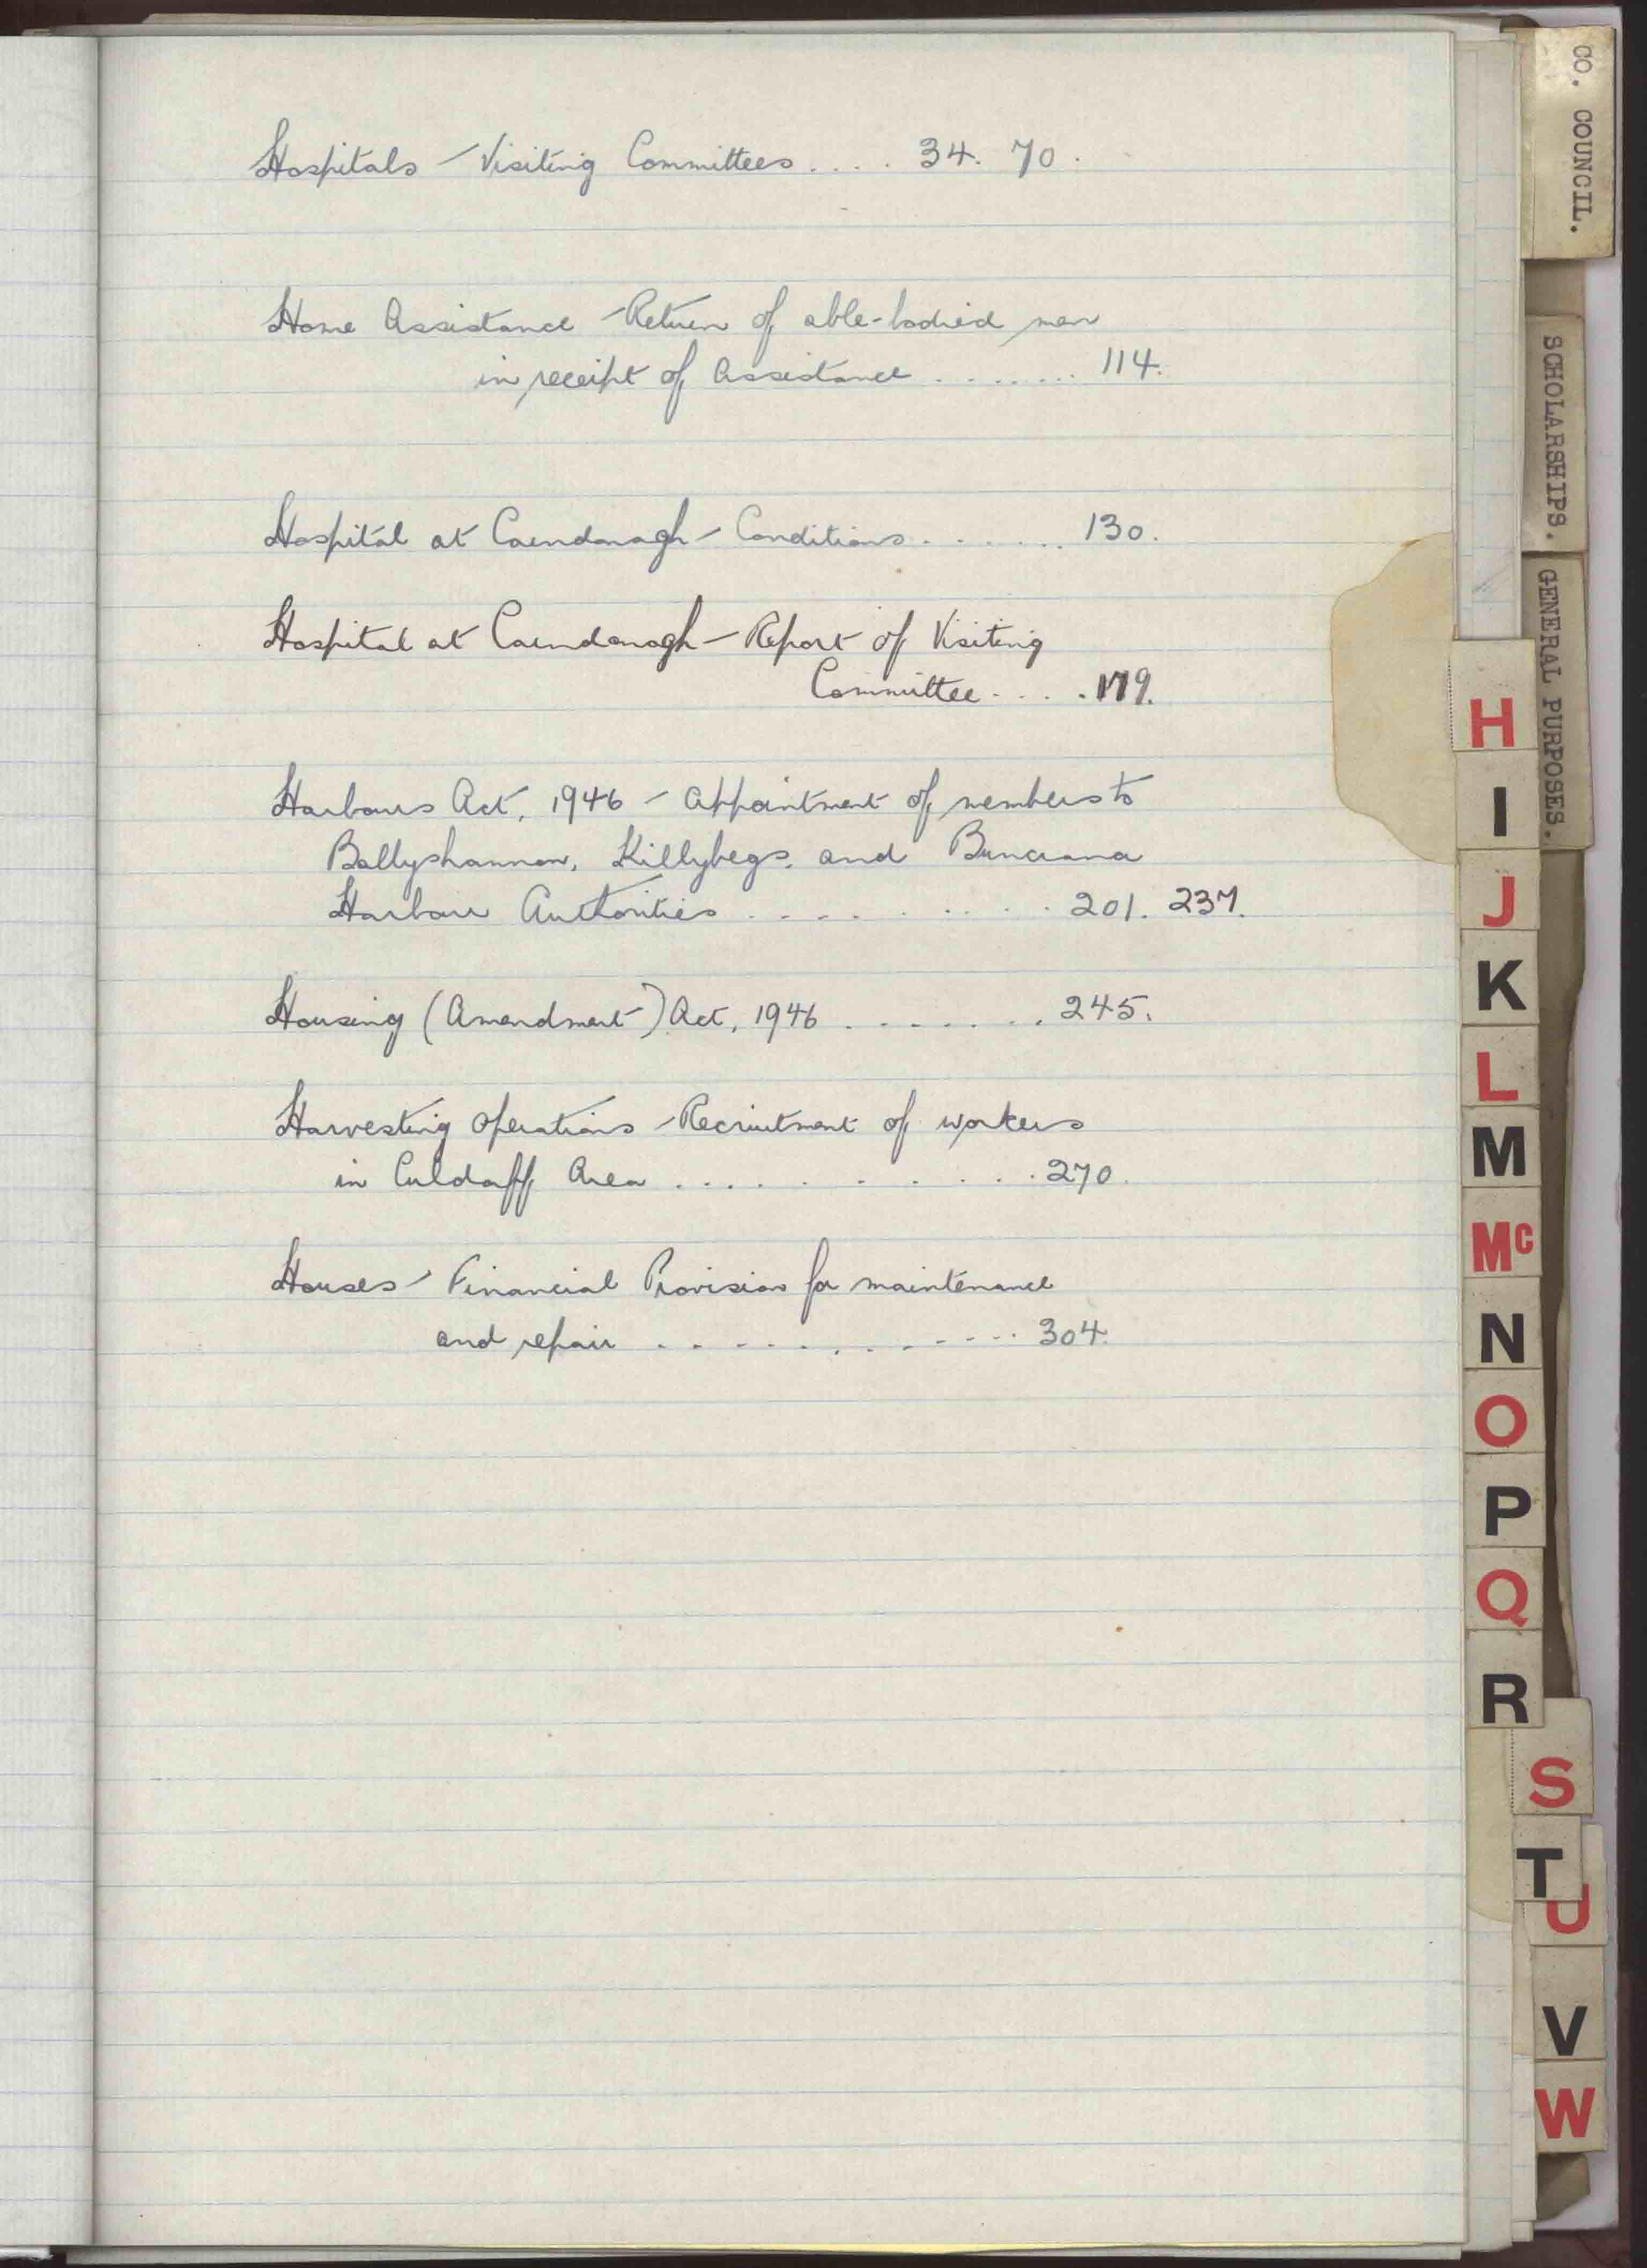 Hospitals - Visiting Committees .... 34. 70.
Home Assistance - Return of able-bodied men
in receipt of Assistance ........ 114.
Hospital at Carndonagh - Conditions ....... 130.
Hospital at Carndonagh - Report of Visiting
Committee .... 179.
Harbours Act, 1946 - Appointment of members to
Ballyshannon, Killybegs, and Buncrana
Harbour Authorities .......... 201. 237.
Housing (Amendment) Act, 1946 ........ 245.
Harvesting Operations - Recruitment of workers
in Culdaff Area .......... 270.
Houses - Financial Provision for maintenance
and repair ............ 304.
CO. COUNCIL.
SCHOLARSHIPS.
GENERAL PURPOSES.
H
I
J
K
L
M
Mc
N
O
P
Q
R
S
T
U
V
W